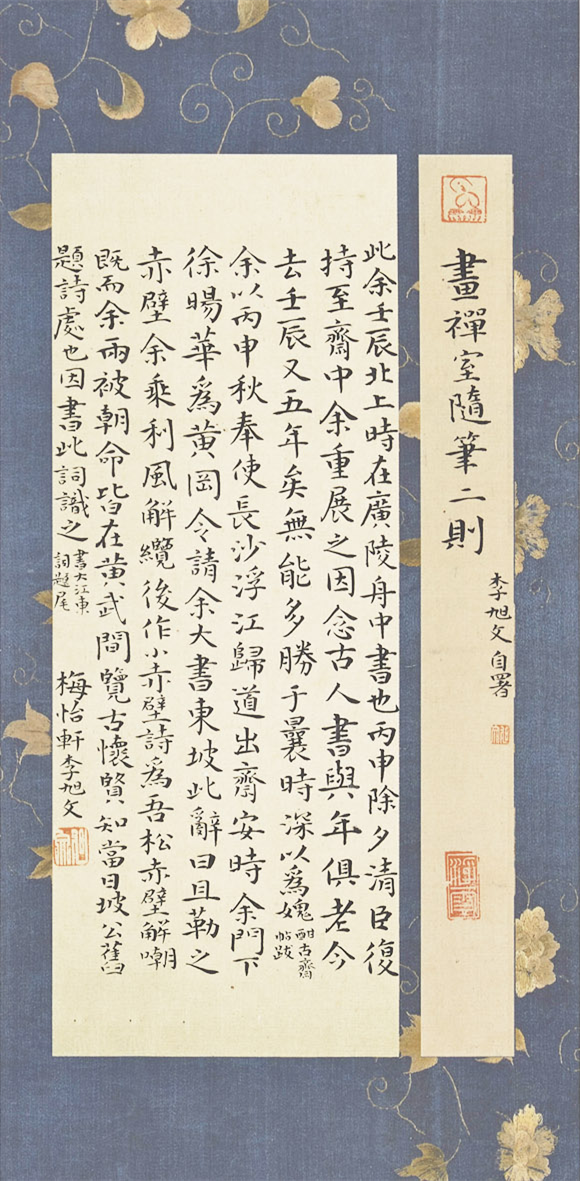 畫禪室隨筆二則
李旭文自署
此余壬辰北上時在廣陵舟中書也丙申除夕清臣復
持至齋中余重展之因念古人書與年俱老今
去壬辰又五年矣無能多勝于曩時深以爲媿酣古齋帖跋
余以丙申秋奉使長沙浮江歸道出齋安時余門下
徐暘華爲黃岡令請余大書東坡此辭曰且勒之
赤壁余乘利風解纜後作小赤壁詩爲吾松赤壁解嘲
既而余兩被朝命皆在黃武間覽古懷賢知當日坡公舊
題詩處也因書此詞識之書大江東詞題尾 梅怡軒李旭文